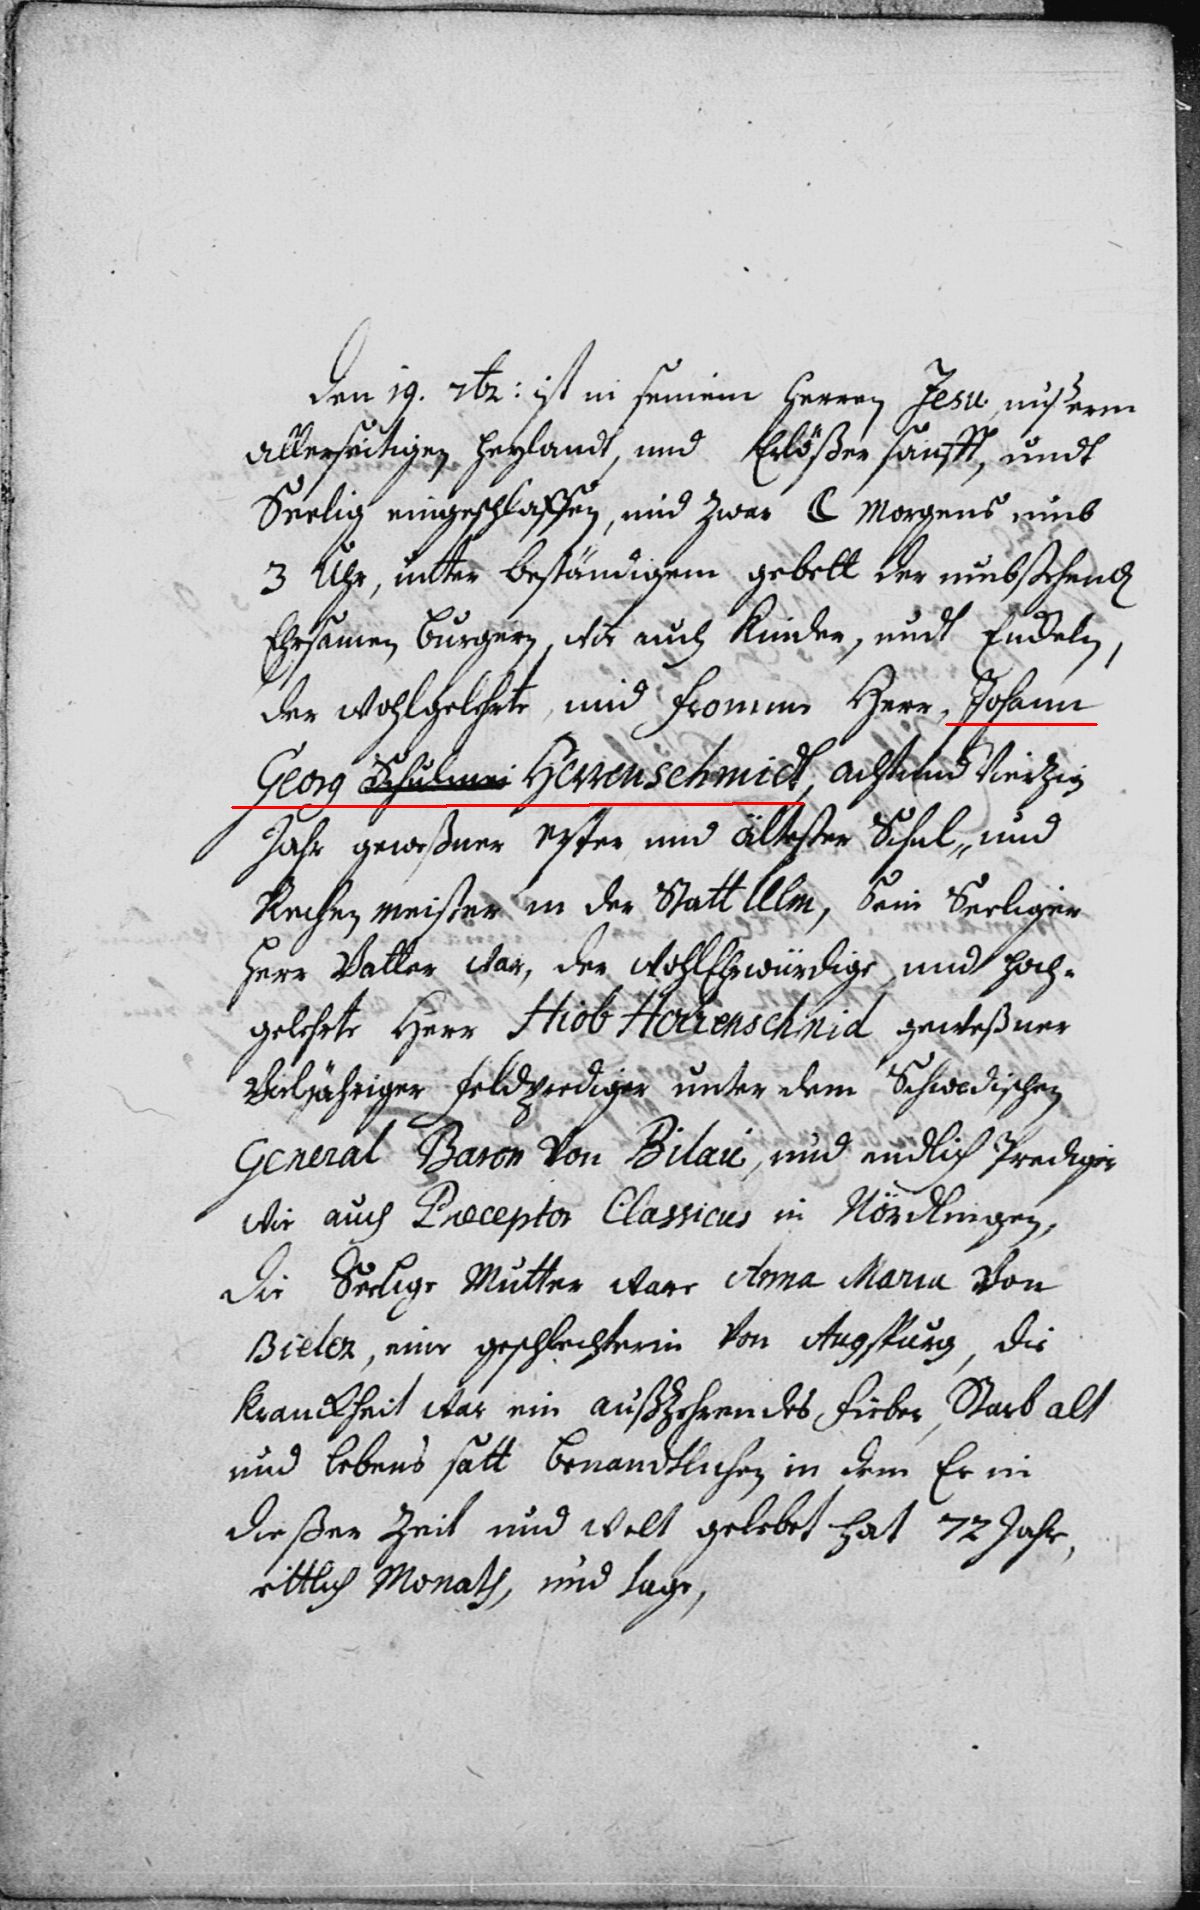 Den 19. 7br: ist in seinem Herren Jesu, unserm
allerseitigen Heylandt, und Erlößer sanfft, undt
Seelig eingeschlaffen, und zwar ☾ Morgens umb
3 Uhr, unter beständigem gebett der umbstehend
Ehrsamen Burgern, wie auch Kinder, undt Enckeln,
der wohlgelehrte, und fromme Herr, Johann
Georg Schulmei Herrenschmidt, achtund Vierzig
Jahr geweßner erster und ältester Schul,, und
Rechen meister in der Statt Ulm, Sein Seeliger
Herr Vatter war, der WohlEhrwürdige und Hoch-
gelehrte Herr Hiob Herrenschmid geweßner
Vieljähriger Feldprediger unter dem Schwedischen
General Baron Von Bilau, und endlich Prediger
wie auch Præceptor Classicus in Nördlingen,
die Seelige Mutter ware Anna Maria Von
Bieler, eine geschlechterin Von Augspurg, die
Kranckheit war ein außzehrendes Fieber, Starb alt
und lebens satt benandtlichen in dem Er in
dießer Zeit und Welt gelebet hat 72 Jahr,
ettlich Monath, und tage,